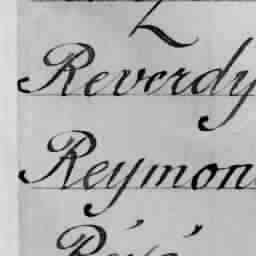 Reverdy
Reymon